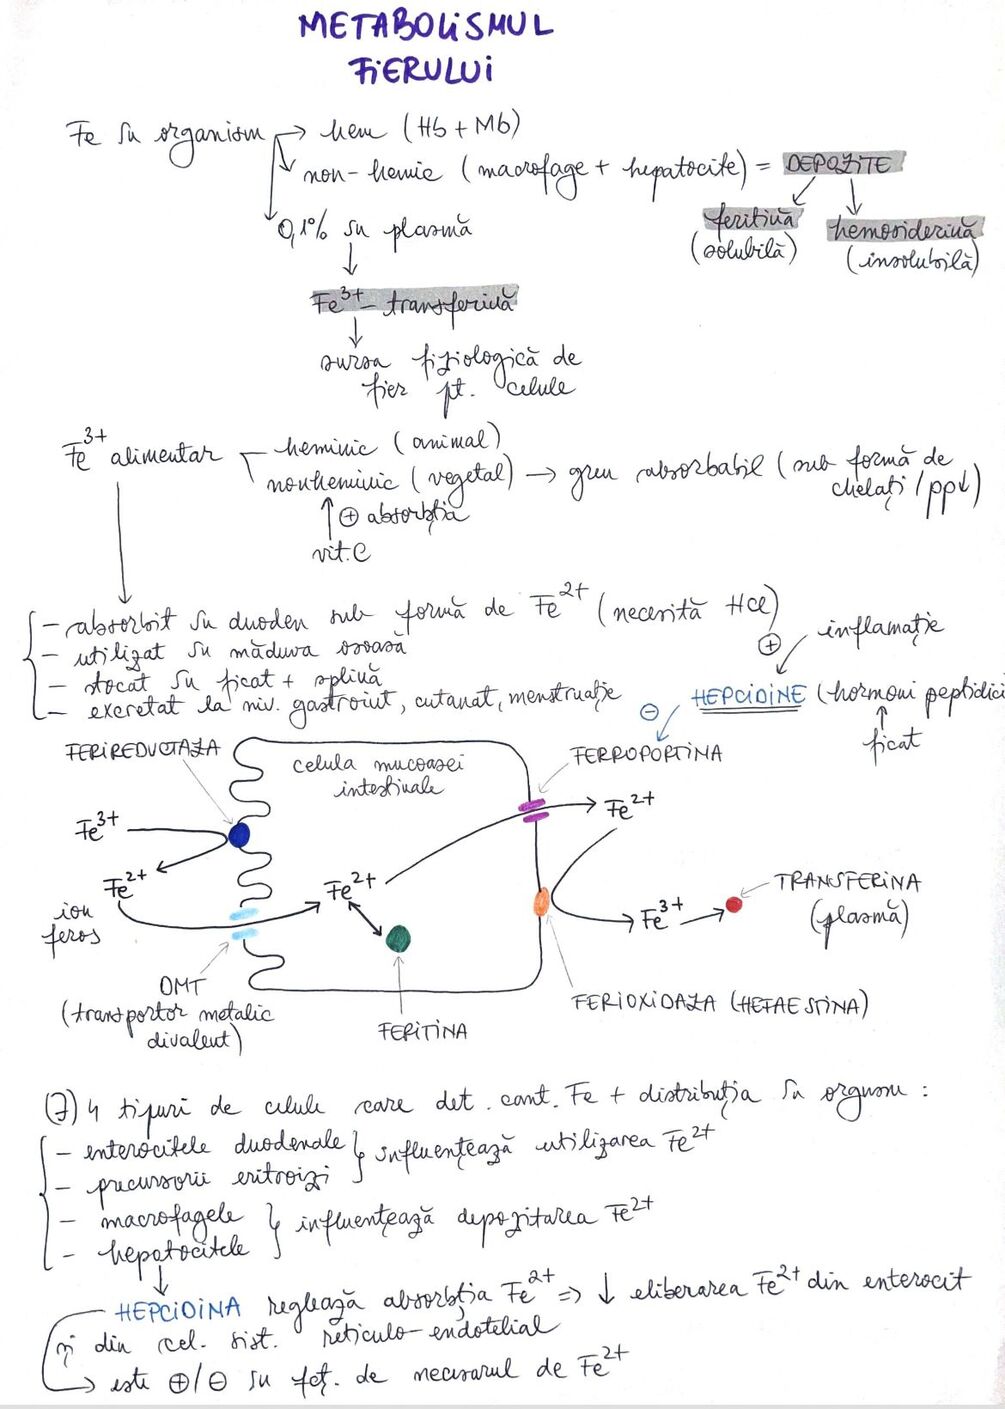 METABOLISMUL
FIERULUI
Fe în organism → hem (Hb + Mb)
non-hemic (macrofage + hepatocite) = DEPOZITE
feritină
(solubilă)
hemosiderină
(insolubilă)
0,1% în plasmă
↓
Fe3+ - transferină
↓
sursa fiziologică de
fier pt. celule
Fe3+ alimentar
heminic (animal)
nonheminic (vegetal) → greu absorbabil (sub formă de
chelați/pp↓)
↑ ⊕ absorbția
vit. C
- absorbit în duoden sub formă de Fe2+ (necesită HCl)
- utilizat în măduva osoasă
- stocat în ficat + splină
- excretat la niv. gastroint, cutanat, menstruație
inflamație
⊕
HEPCIDINE (hormoni peptidici
↑
ficat
⊖
FERIREDUCTAZA
celula mucoasei
intestinale
FERROPORTINA
Fe3+
Fe2+
ion
feros
Fe2+
Fe2+
Fe3+
TRANSFERINA
(plasmă)
DMT
(transportor metalic
divalent)
FERITINA
FERIOXIDAZA (HEFAESTINA)
(∃) 4 tipuri de celule care det. cont. Fe + distribuția în orgnsm :
- enterocitele duodenale } influențează utilizarea Fe2+
- precursorii eritroizi
- macrofagele } influențează depozitarea Fe2+
- hepatocitele
↓
HEPCIDINA reglează absorbția Fe2+ => ↓ eliberarea Fe2+ din enterocit
și din cel. sist. reticulo-endotelial
→ este ⊕/⊖ în fcț. de necesarul de Fe2+